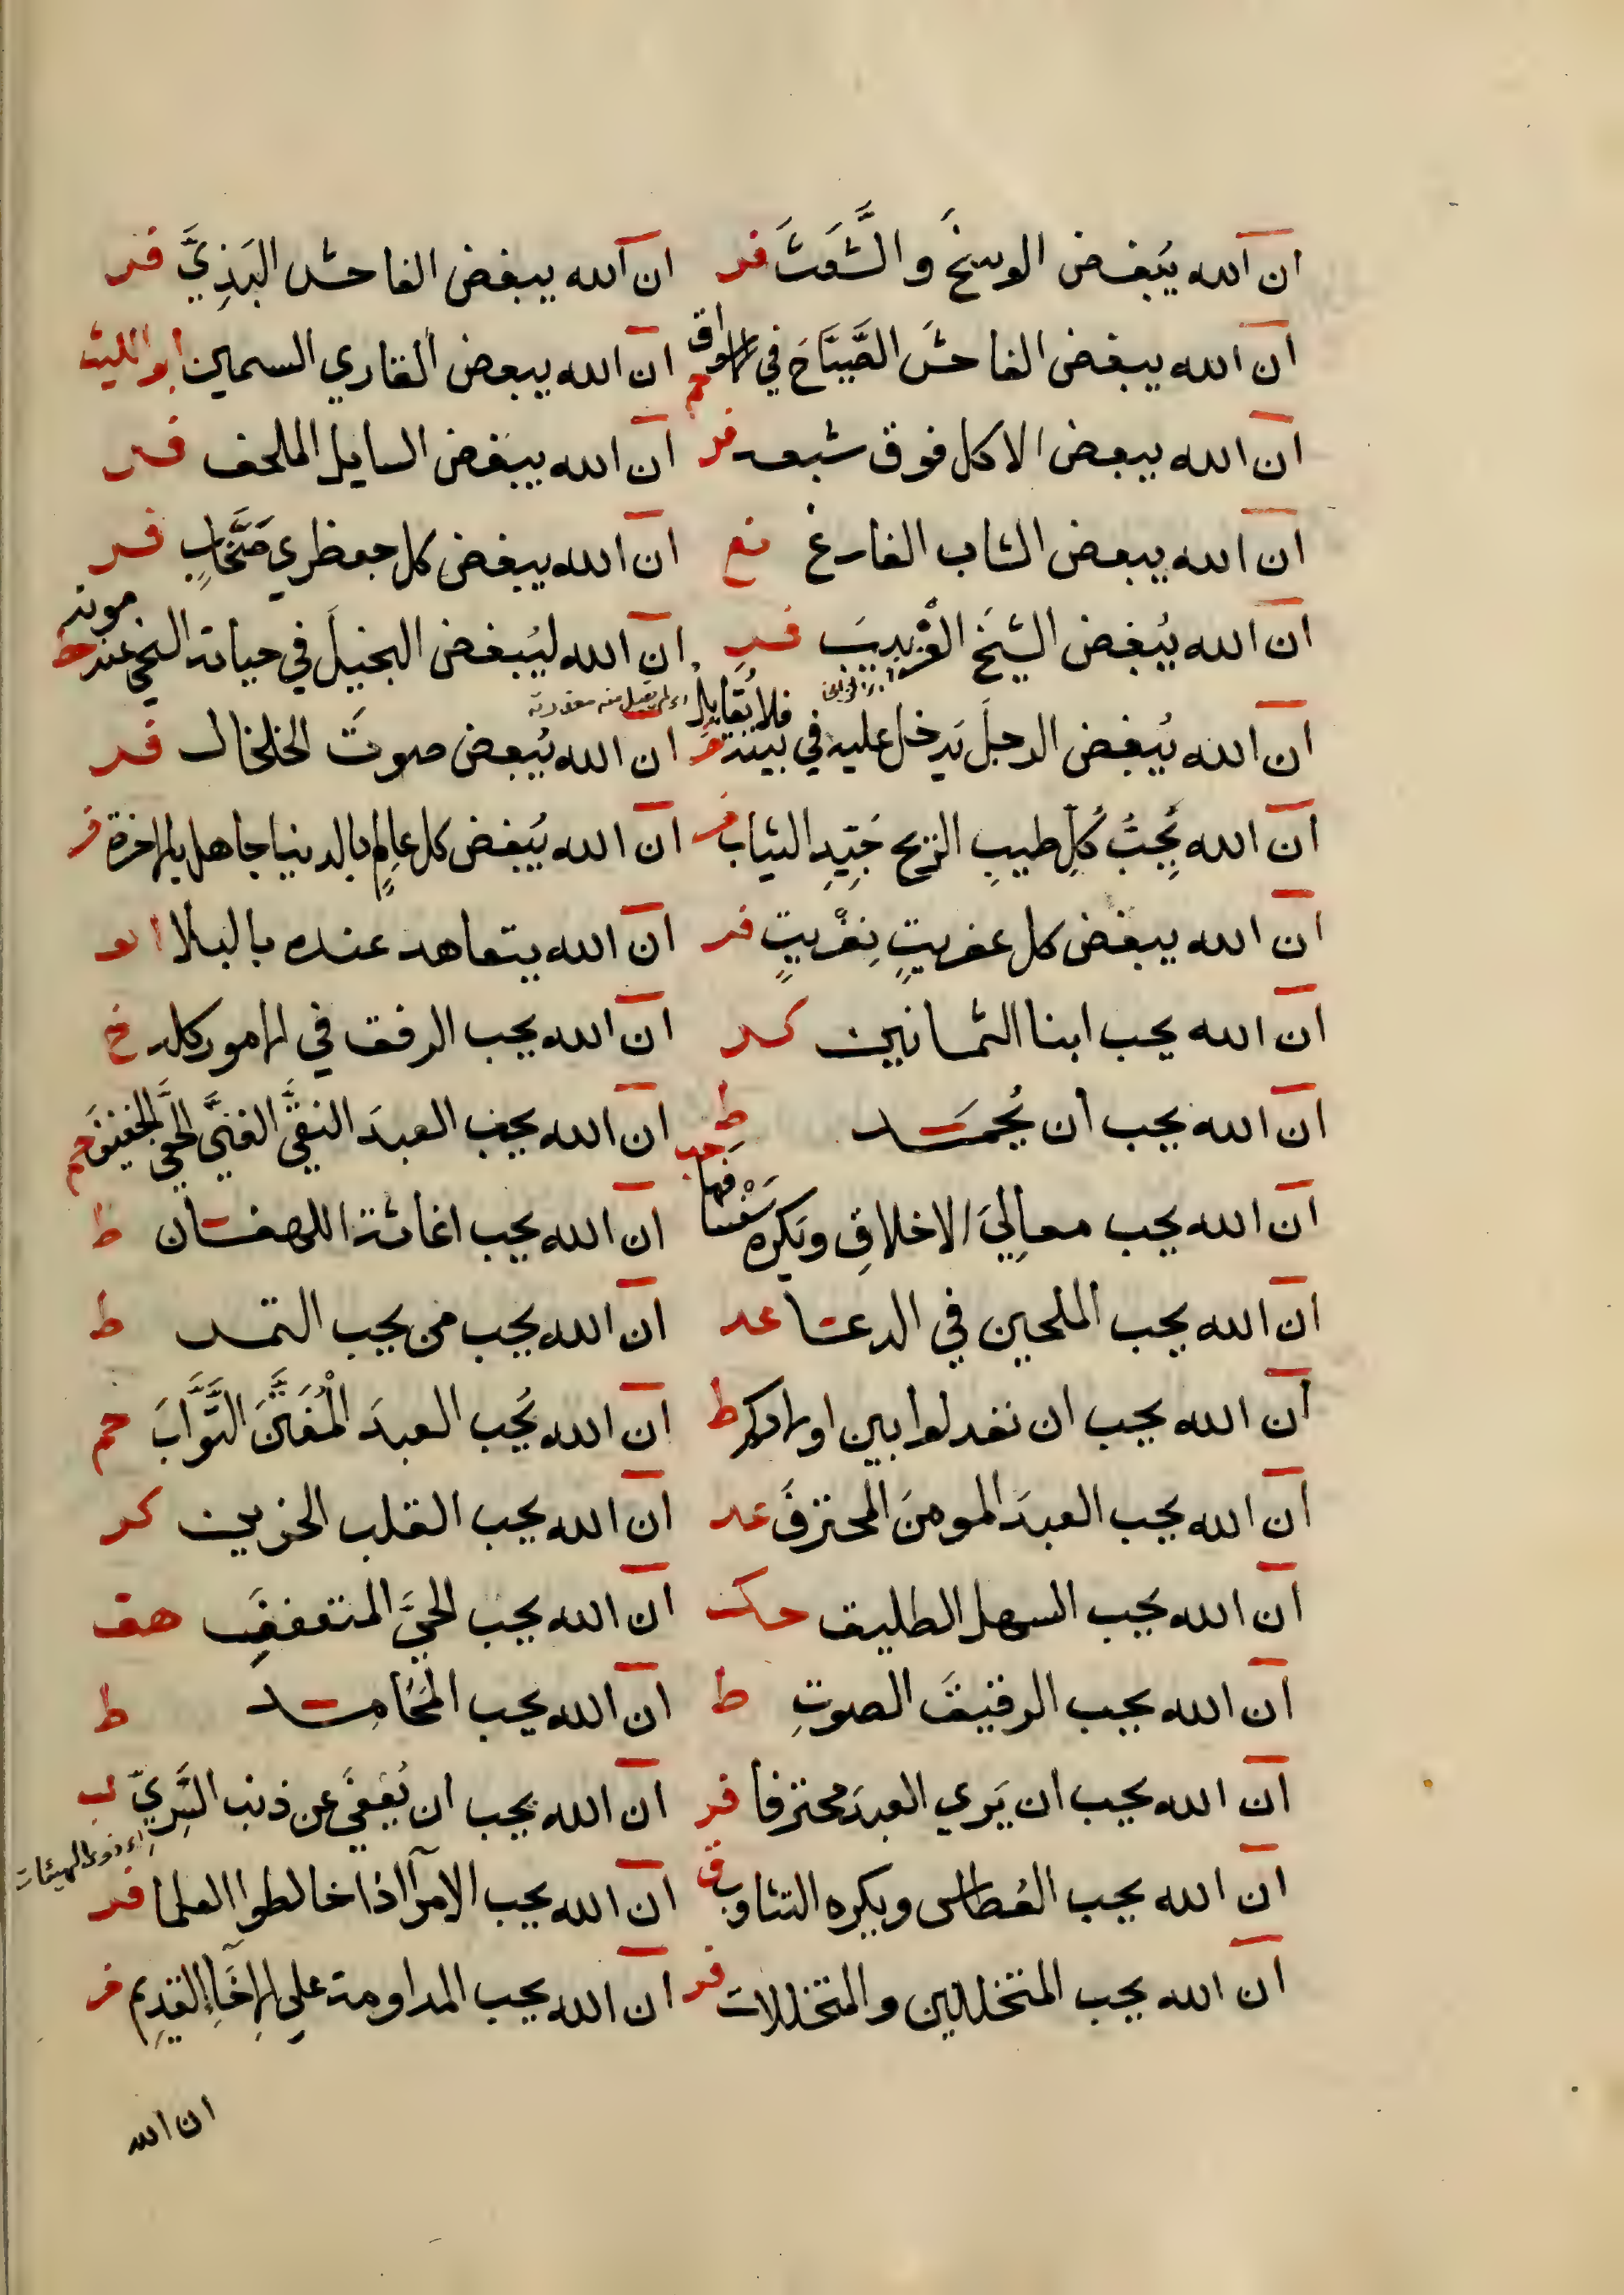 ان الله يُبغض الوسخَ والشَّعَثَ فر ان الله يبغض الفاحش البَذِيَّ فر
ان الله يبغض الفاحشَ الصَّيَّاحَ في الاسواق حم ان الله يبعض القاري السمين ابو الليث
ان الله يبعض الاكل فوق شبعه فر ان الله يبغض السايل الملحف فر
ان الله يبعض الشاب الفارغ فع ان الله يبغض كل جعظري صَخَّابٍ فر
ان الله يُبغض الشيخَ الغِرْبِيبَ فر ان الله ليُبغض البخيلَ في حياته السخي عند موته خط
ان الله يُبغض الرجلَ يَدخل عليه في بيته فلا يُقاتِل فر ان الله يُبعض صوتَ الخلخال فر
ان الله يُحِبُّ كُلَّ طيبِ الريح جَيِّدِ الثياب فر ان الله يُبغض كل عالِمٍ بالدنيا جاهل بالاخرة فر
ان الله يبغض كل عفريتٍ نِفْريتٍ فر ان الله يتعاهد عبده بالبلا ابو
ان الله يحب ابنا الثمانين كر ان الله يحب الرفق في الامور كله خ
ان الله يحب أن يُحمَد ط ان الله يحب العبدَ التقيَّ الغنيَّ الخفيَّ حم
ان الله يحب معالِيَ الاخلاقِ ويَكره سَفْسافها ان الله يحب اغاثة اللهفان ط
ان الله يحب الملحين في الدعا عد ان الله يحب من يحب التمر ط
ان الله يحب ان تعدلوا بين اولادكم ط ان الله يُحب العبدَ الْمُفَتَّنَ التَّوَّابَ حم
ان الله يحب العبدَ المومنَ المحترفَ عد ان الله يحب القلب الحزين كر
ان الله يحب السهل الطليق حك ان الله يحب الحييَّ المتعففَ هق
ان الله يحب الرقيقَ الصوتِ ط ان الله يحب المَحَامِد ط
ان الله يحب ان يَري العبدَ محترفا فر ان الله يحب ان يُعفَي عن ذنب السَّرِيِّ لب
اي ذوي الهيئات
ان الله يحب العُطاس ويكره التثاوب ق ان الله يحب الامرآ اذا خالطوا العلما فر
ان الله يحب المتخللين والمتخللات فر ان الله يحب المداومة علي الاِخَآءِ القديم فر
ان الله